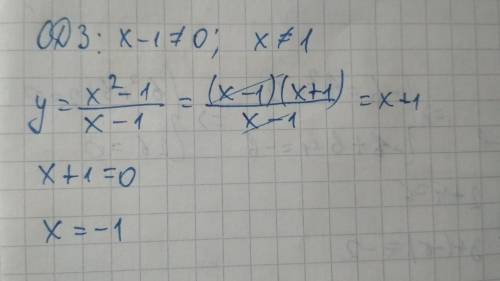 ОДЗ: x-1≠0; x≠1
y = x²-1 / x-1 = (x-1)(x+1) / x-1 = x+1
x+1=0
x=-1